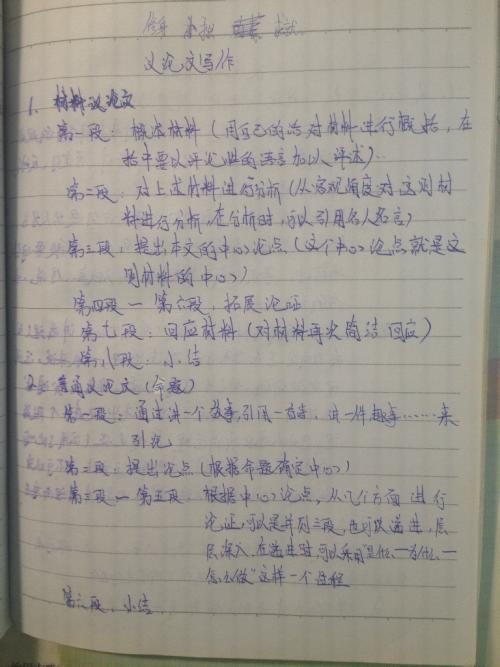 议论文写作
1. 材料议论文
第一段：概述材料（用自己的话对材料进行概括，在
括中要以评论性的语言加以评述）.
第二段：对上述材料进行分析（从客观角度对这则材
料进行分析，在分析时，可以引用名人名言）
第三段：提出本文的中心论点（这个中心论点就是这
则材料的中心）
第四段—第六段，拓展论证
第七段：回应材料（对材料再次简洁回应）
第八段：小结
普通议论文（命题）
第一段：通过讲一个故事，引用一首诗，讲一件趣事……来
引论
第二段：提出论点（根据命题确定中心）
第三段—第五段 根据中心论点，从几个方面进行
论证，可以是并列三段，也可以递进，层
层深入，在递进时，可以采用"是什么—为什么—
怎么做"这样一个过程
第六段，小结